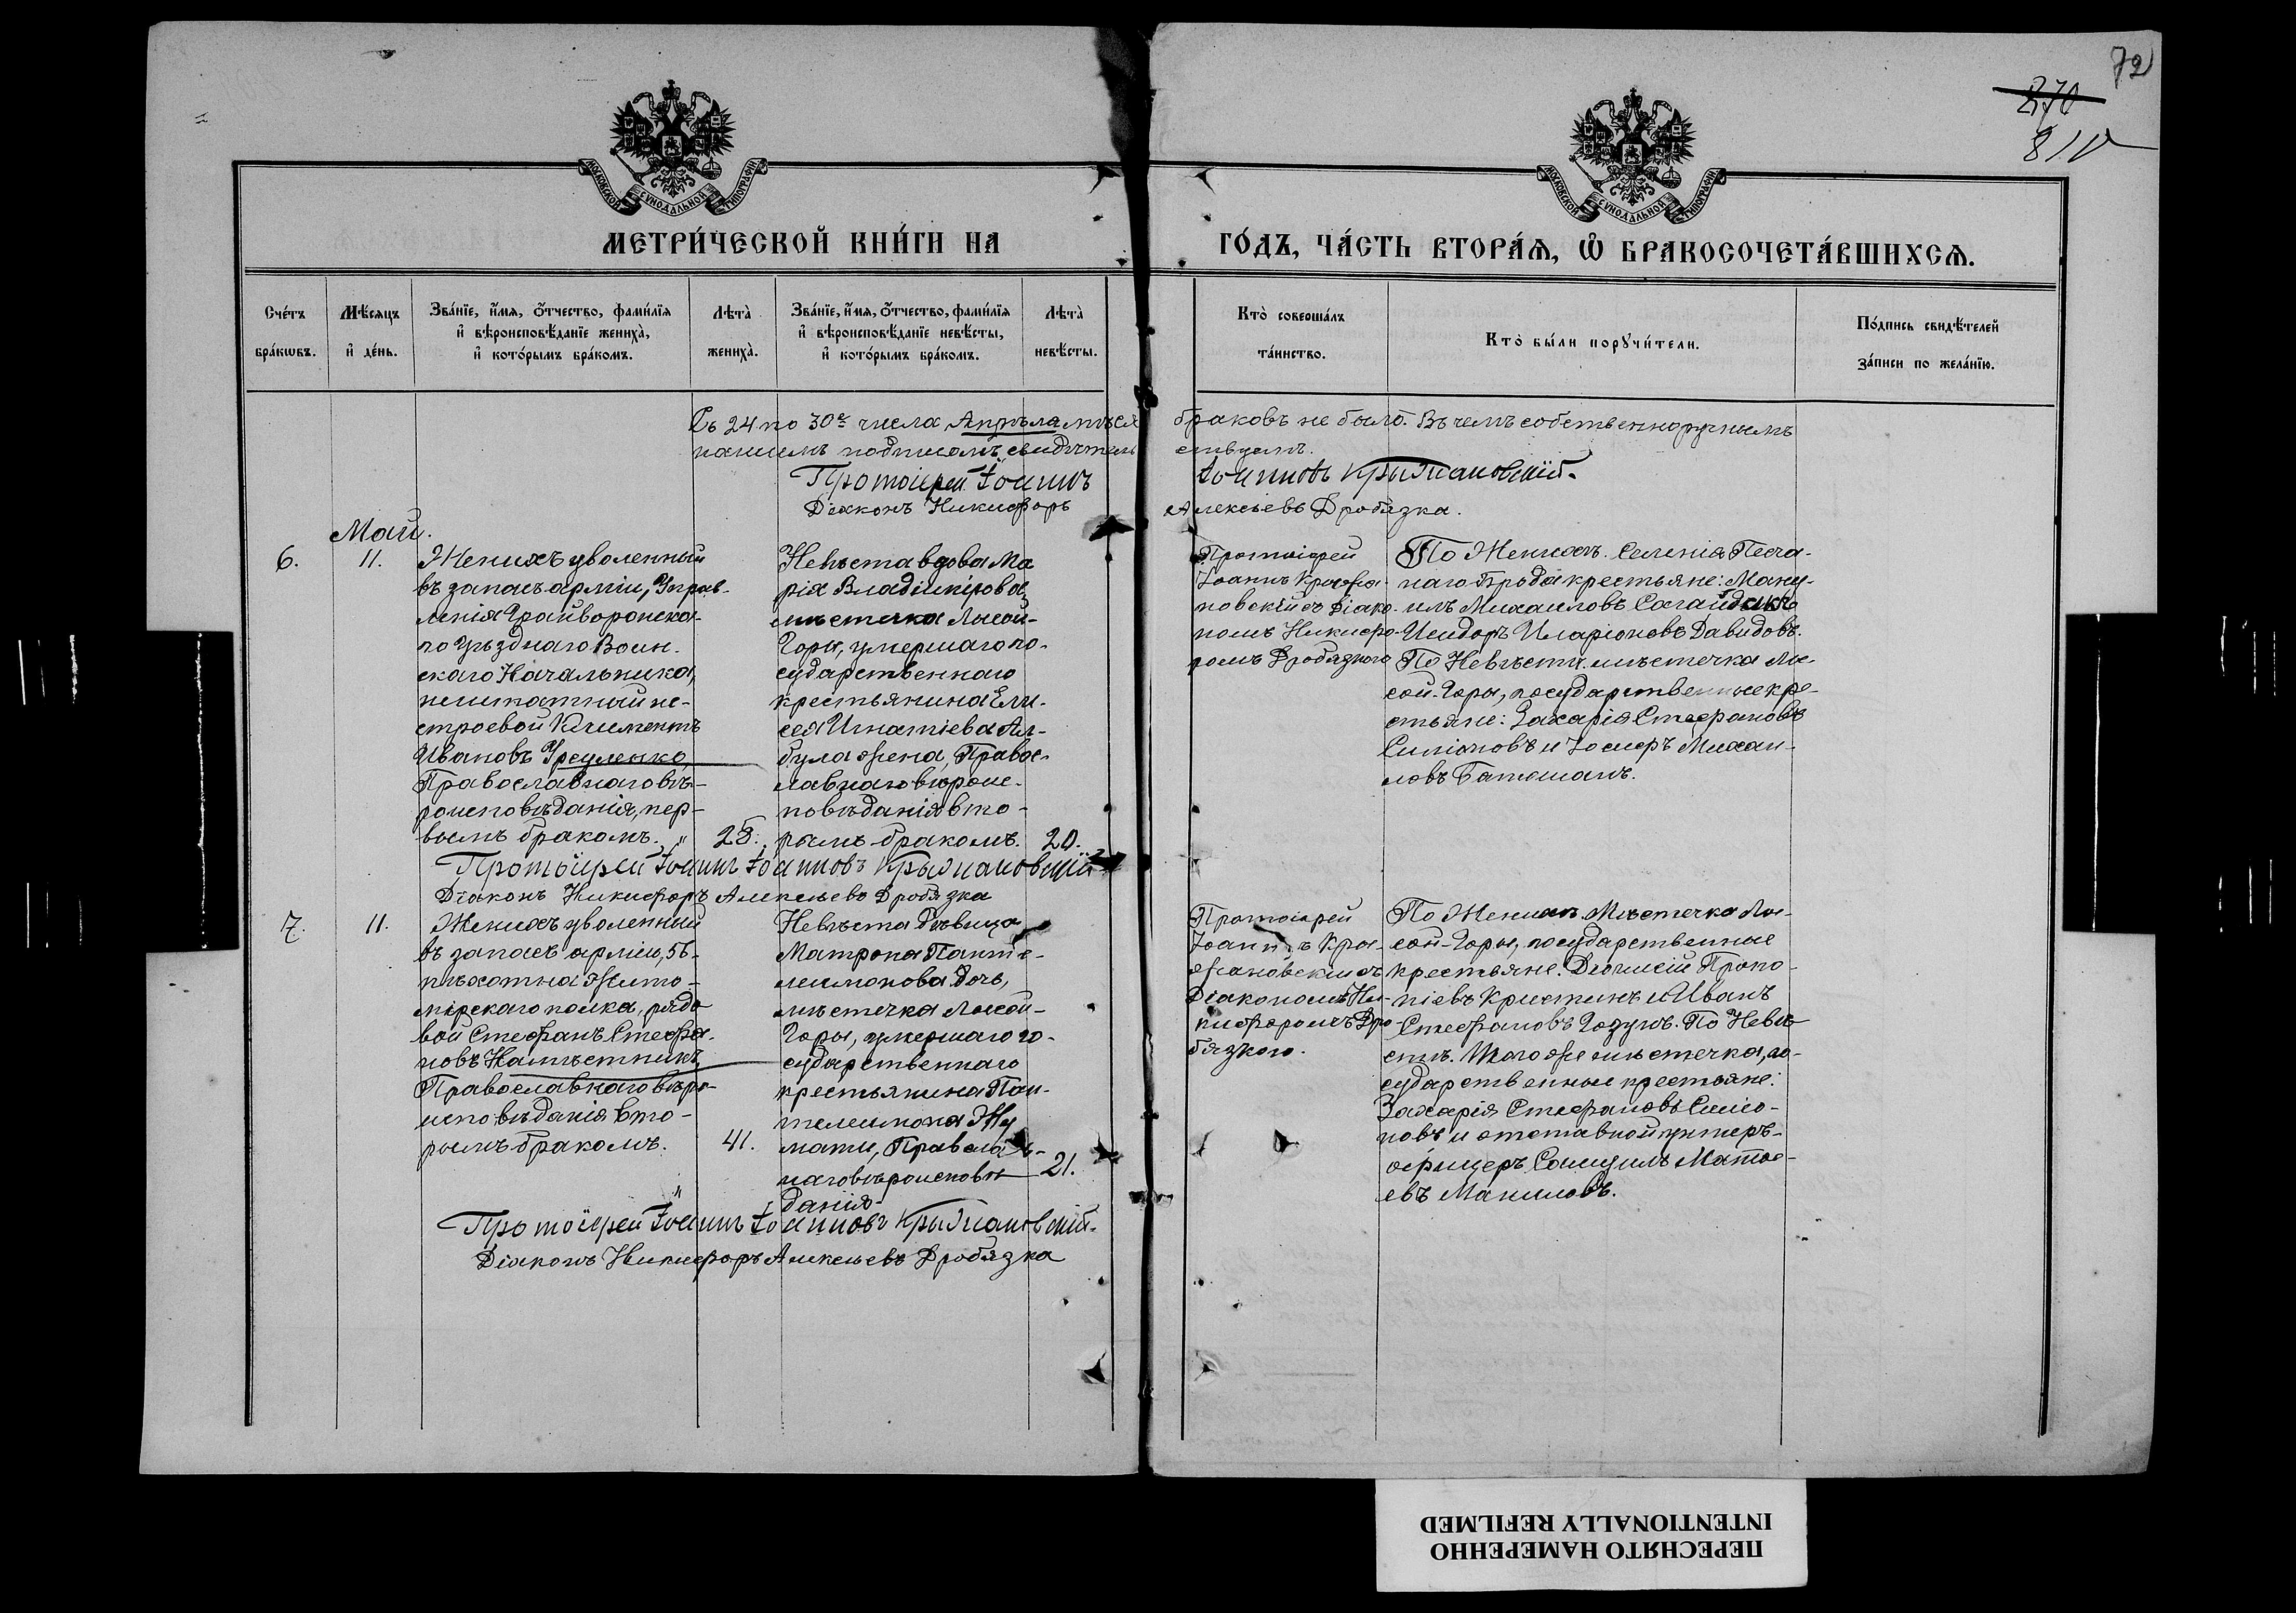 72
270
811
МОСКОВСКОЙ СѴНОДАЛЬНОЙ ТИПОГРАФІИ
МОСКОВСКОЙ СѴНОДАЛЬНОЙ ТИПОГРАФІИ
МЕТРИ́ЧЕСКОЙ КНИ́ГИ НА
ГО́ДЪ, ЧА́СТЬ ВТОРА́Я, Ѽ БРАКОСОЧЕТА́ВШИХСЯ.
Сче́тъ
бра́кѡвъ.
Мѣ́сяцъ
и҆ де́нь.
Зва́нїе, и҆́мя, ѻ҆́тчество, фами́лїя
и҆ вѣроисповѣ́данїе жениха̀,
и҆ кото́рымъ бра́комъ.
Лѣта̀
жениха̀.
Зва́нїе, и҆́мя, ѻ҆́тчество, фами́лїя
и҆ вѣроисповѣ́данїе невѣ́сты,
и҆ кото́рымъ бра́комъ.
Лѣта̀
невѣ́сты.
Кто̀ соверша́лъ
та́инство.
Кто̀ бы́ли порꙋчи́тели.
По́дпись свидѣ́телей
за́писи по жела́нїю.
Съ 24 по 30е числа Апрѣля мѣся
браковъ не было. Въ чемъ собственноручнымъ
нашимъ подписомъ свидѣтель
ствуемъ.
Протоіерей Іоаннъ
Іоанновъ Крыжановскій.
Діаконъ Никифоръ
Алексѣевъ Дробязка.
Май.
6.
11.
Женихъ уволенный
въ запасъ арміи, Управ-
ленія Грайворонска-
го Уѣзднаго Воин-
скаго Начальника,
нештатный не-
строевой Климентъ
Ивановъ
Православнаго вѣ-
роисповѣданія, пер-
вымъ бракомъ. "
28.
Невѣста вдова Ма
рія Владимірова,
мѣстечка Лысой-
Горы, умершаго го-
сударственнаго
крестьянина Ели-
сея Игнатіева Ал-
була жена, Правос-
лавнаго вѣроис-
повѣданія вто-
рымъ бракомъ.
20.
Протоіерей
Іоаннъ Крыжа-
новскій съ Діако-
номъ Никифо-
ромъ Дробязкого
По Женихѣ. Селенія Песча-
наго Брода крестьяне: Ману-
илъ Михаиловъ Сагайдакъ
Исидоръ Иларіоновъ Давидовъ.
По Невѣстѣ. мѣстечка Лы-
сой-Горы, государственные кре-
стьяне: Захарія Стефановъ
Симіоновъ и Іосифъ Михаи-
ловъ Батошанъ.
Протоіерей Іоаннъ Іоанновъ Крыжановскій
Діаконъ Никифоръ Алексѣевъ Дробязка
7.
11.
Женихъ уволенный
въ запасъ арміи, 56-
пѣхотна Жито-
мірскаго полка, рядо
вой Стефанъ Стефа-
новъ Намѣстникъ,
Православнаго вѣро-
исповѣданія вто-
рымъ бракомъ.
41.
Невѣста Дѣвица
Матрона Панте-
леимонова дочь,
мѣстечка Лысой-
Горы, умершаго го-
сударственнаго
крестьянина Пан-
телеимона Жу
мати, Правосла-
наго вѣроисповѣ
данія
21.
Протоіерей
Іоаннъ Кры-
жановскій съ
Діакономъ Ни-
кифоромъ Дро-
бязкою.
По Женихѣ Мѣстечка Лы-
сой-Горы, государственные
крестьяне. Діонисій Проко-
піевъ Кристинъ и Иванъ
Стефановъ Гозунъ. По Невѣ
стѣ. Того же мѣстечка, го-
сударственные крестьяне:
Захарія Стефановъ Симіо-
новъ и отставной унтеръ-
офицеръ Самуилъ Матѳе-
евъ Маниловъ.
"
Протоіерей Іоаннъ Іоанновъ Крыжановскій.
Діаконъ Никифоръ Алексѣевъ Дробязка
ПЕРЕСНЯТО НАМЕРЕННО
INTENTIONALLY REFILMED